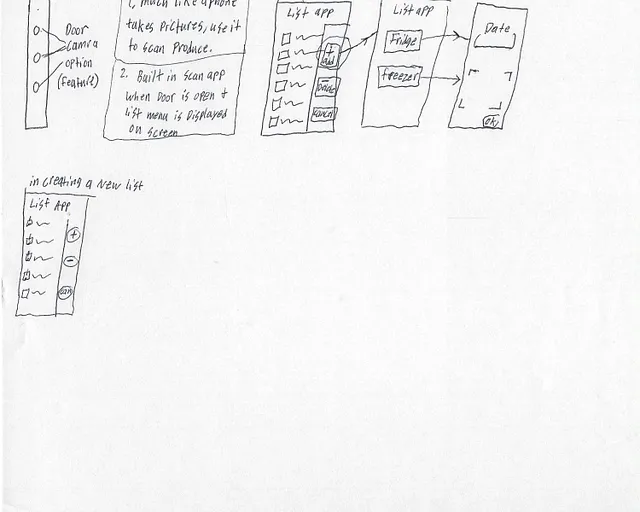 Door
Camra
option
(feature)
1, much like a phone
takes pictures, use it
to scan Produce.
2. Built in scan app
when Door is open &
list menu is Displayed
on screen
List app
+
add
-
Cancel
List app
Fridge
freezer
Date
OK
in creating a New list
List App
+
-